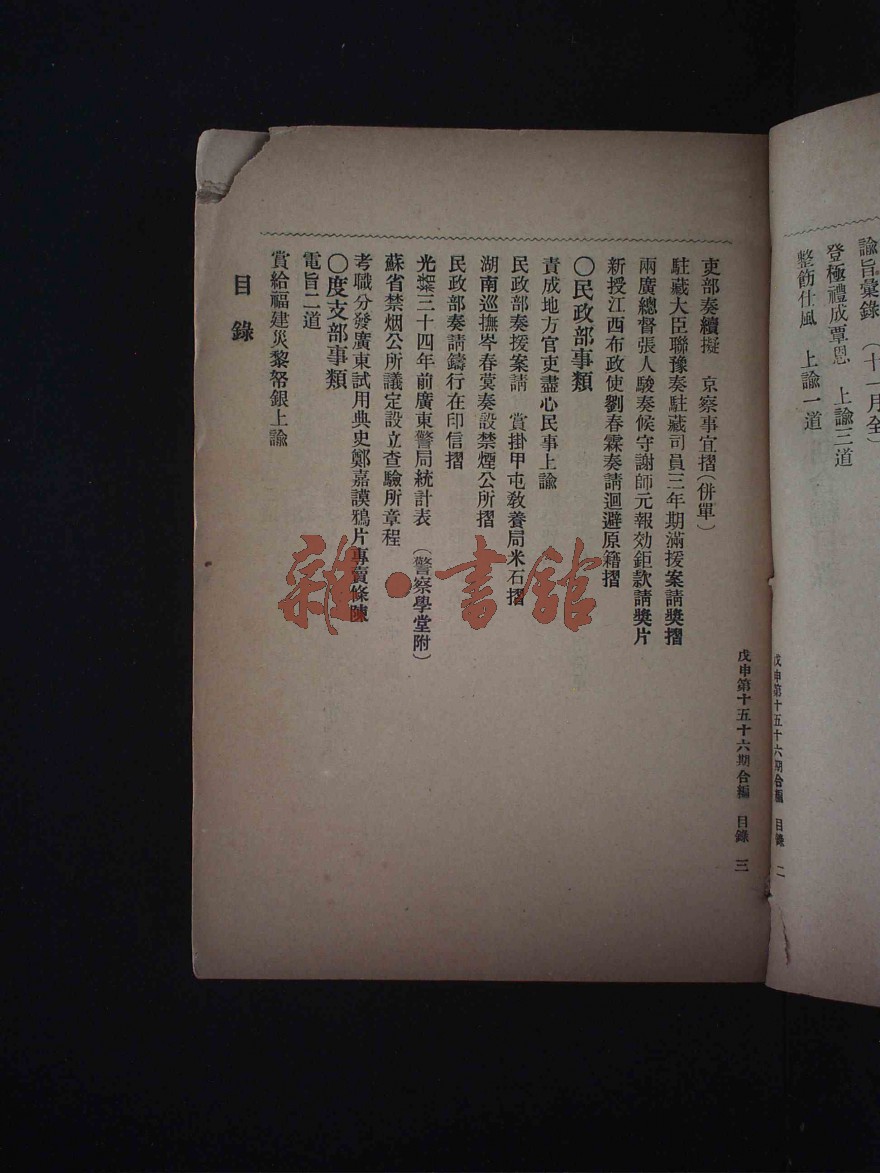 諭旨彙錄　(十一月全)
登極禮成覃恩　上諭三道
整飭仕風　上諭一道
戊申第十五十六期合編　目錄　二
戊申第十五十六期合編　目錄　三
吏部奏續擬　京察事宜摺(併單)
駐藏大臣聯豫奏駐藏司員三年期滿援案請獎摺
兩廣總督張人駿奏候守謝師元報効鉅款請獎片
新授江西布政使劉春霖奏請迴避原籍摺
〇民政部事類
責成地方官吏盡心民事上諭
民政部奏援案請　賞掛甲屯敎養局米石摺
湖南巡撫岑春蓂奏設禁煙公所摺
民政部奏請鑄行在印信摺
光緒三十四年前廣東警局統計表　(警察學堂附)
蘇省禁烟公所議定設立查驗所章程
考職分發廣東試用典史鄭嘉謨鴉片專賣條陳
〇度支部事類
電旨二道
賞給福建災黎帑銀上諭
目錄
雜·書館